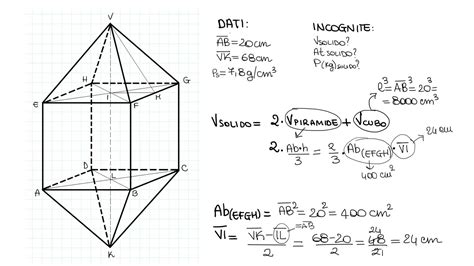 V
H
G
I
H
E
F
D
C
L
A
B
K
DATI:
AB = 20 cm
VK = 68 cm
Ps = 7,8 g/cm³
INCOGNITE:
Vsolido?
At solido?
P(kg) solido?
ℓ³ = AB³ = 20³ =
= 8000 cm³
Vsolido = 2 · Vpiramide + Vcubo
24 cm
2 · Ab·h/3 = 2/3 · Ab(EFGH) · VI
400 cm²
Ab(EFGH) = AB² = 20² = 400 cm²
VI = (VK - IL)/2 = (68 - 20)/2 = 48/2 = 24 cm
= AB
24
1